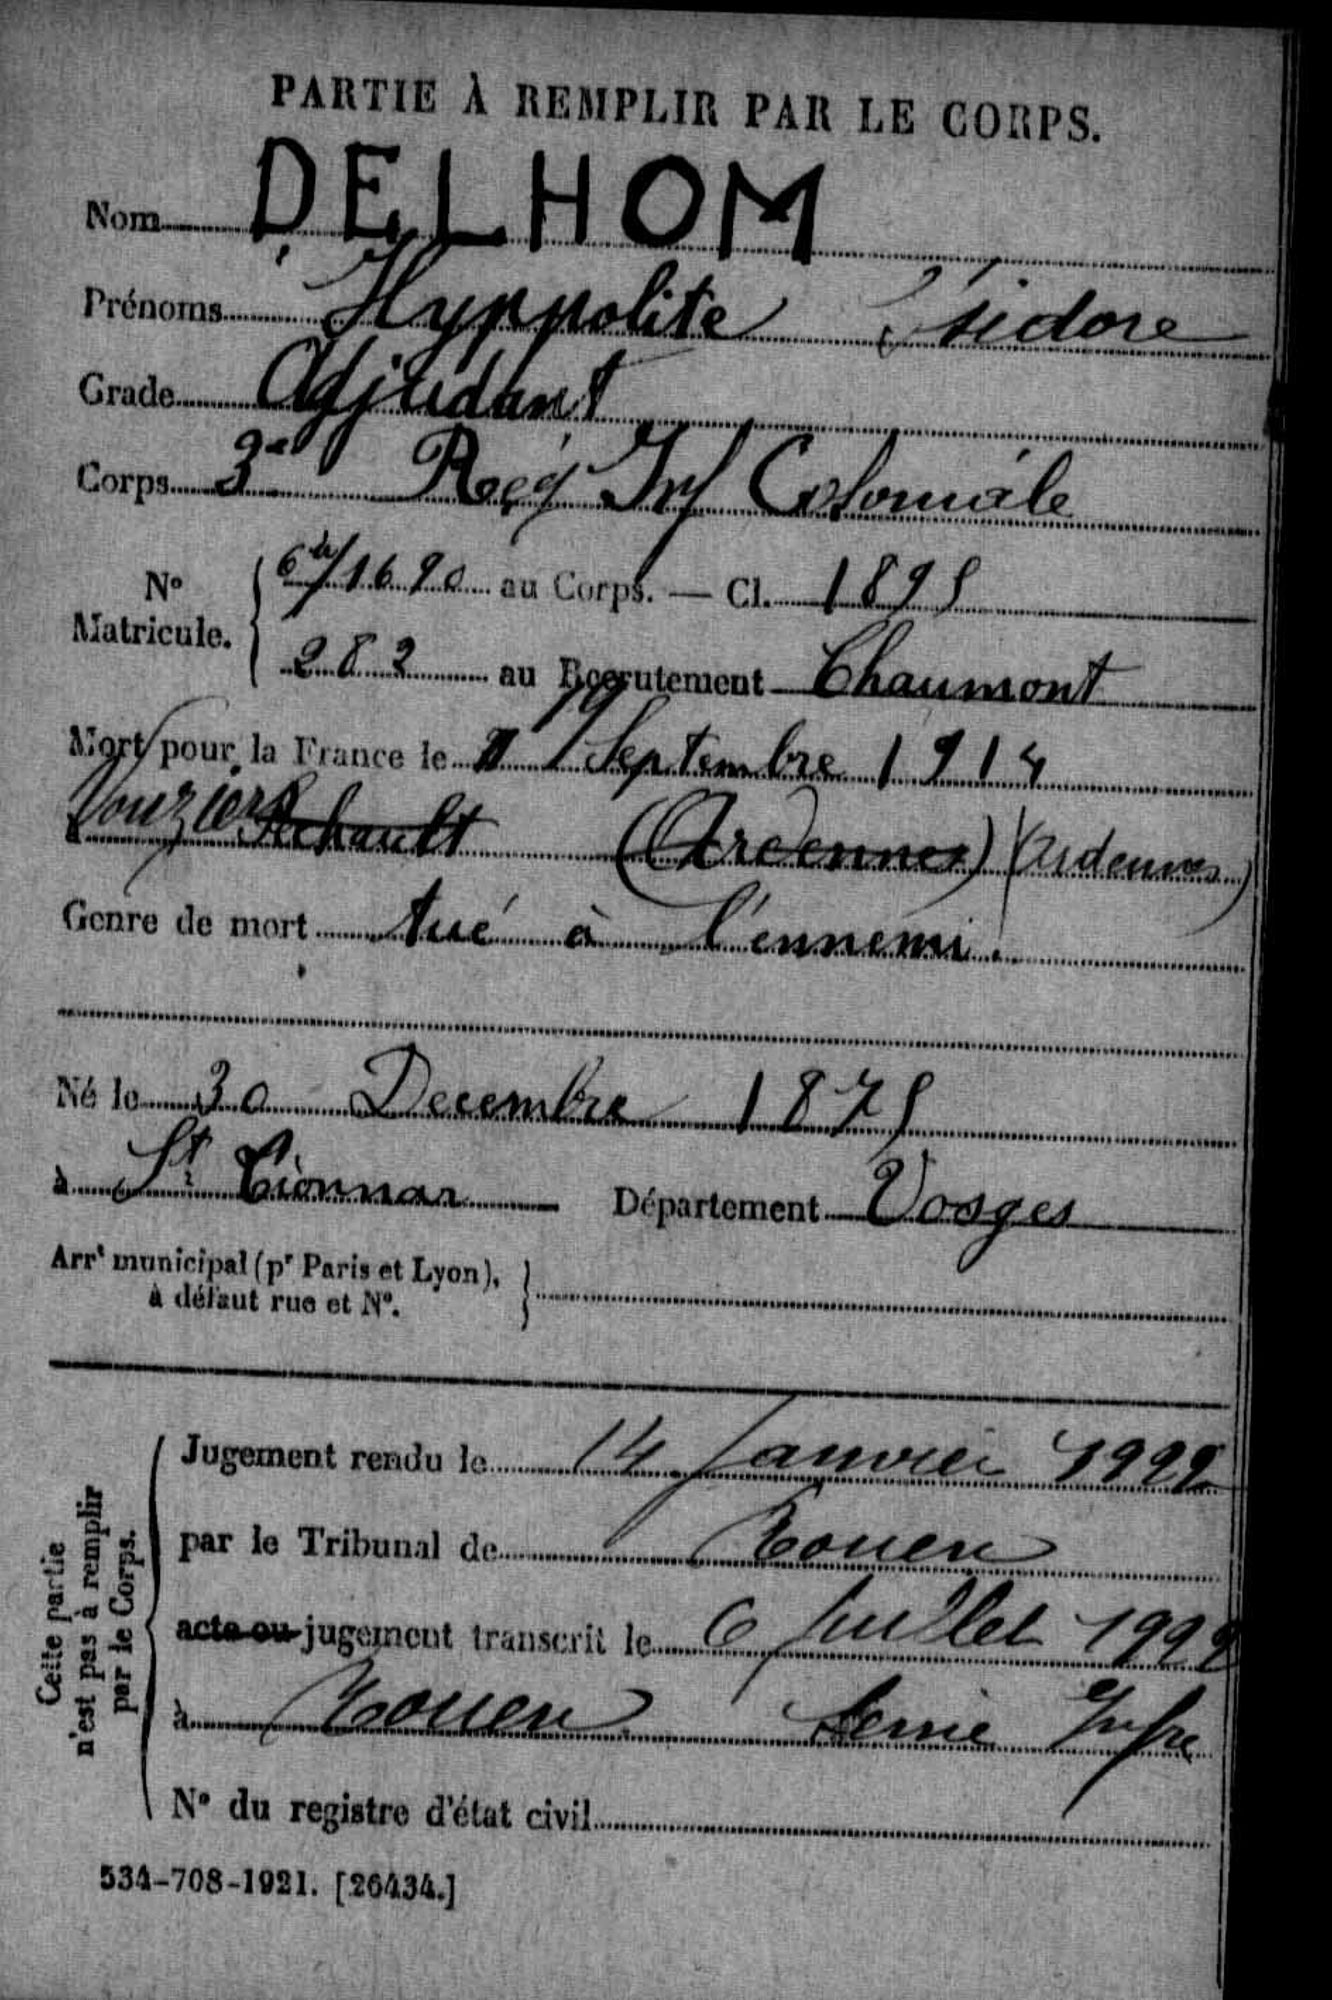 PARTIE À REMPLIR PAR LE CORPS.
Nom DELHOM
Prénoms Hyppolite Isidore
Grade Adjudant
Corps 3e Rég Inf Coloniale
N° Matricule. 1690 au Corps. — Cl. 1895
282 au Recrutement Chaumont
19
Mort pour la France le Septembre 1914
à Vouziers Séchault (Ardennes) (Ardennes)
Genre de mort tué à l'ennemi.
Né le 30 Decembre 1875
à St Département Vosges
Arrt municipal (pr Paris et Lyon),
à défaut rue et N°.
Cette partie
n'est pas à remplir
par le Corps.
Jugement rendu le 14 Janvier 1922
par le Tribunal de Rouen
acte ou jugement transcrit le 6 Juillet 1922
à Rouen Seine Infre
N° du registre d'état civil
534-708-1921. [26434.]